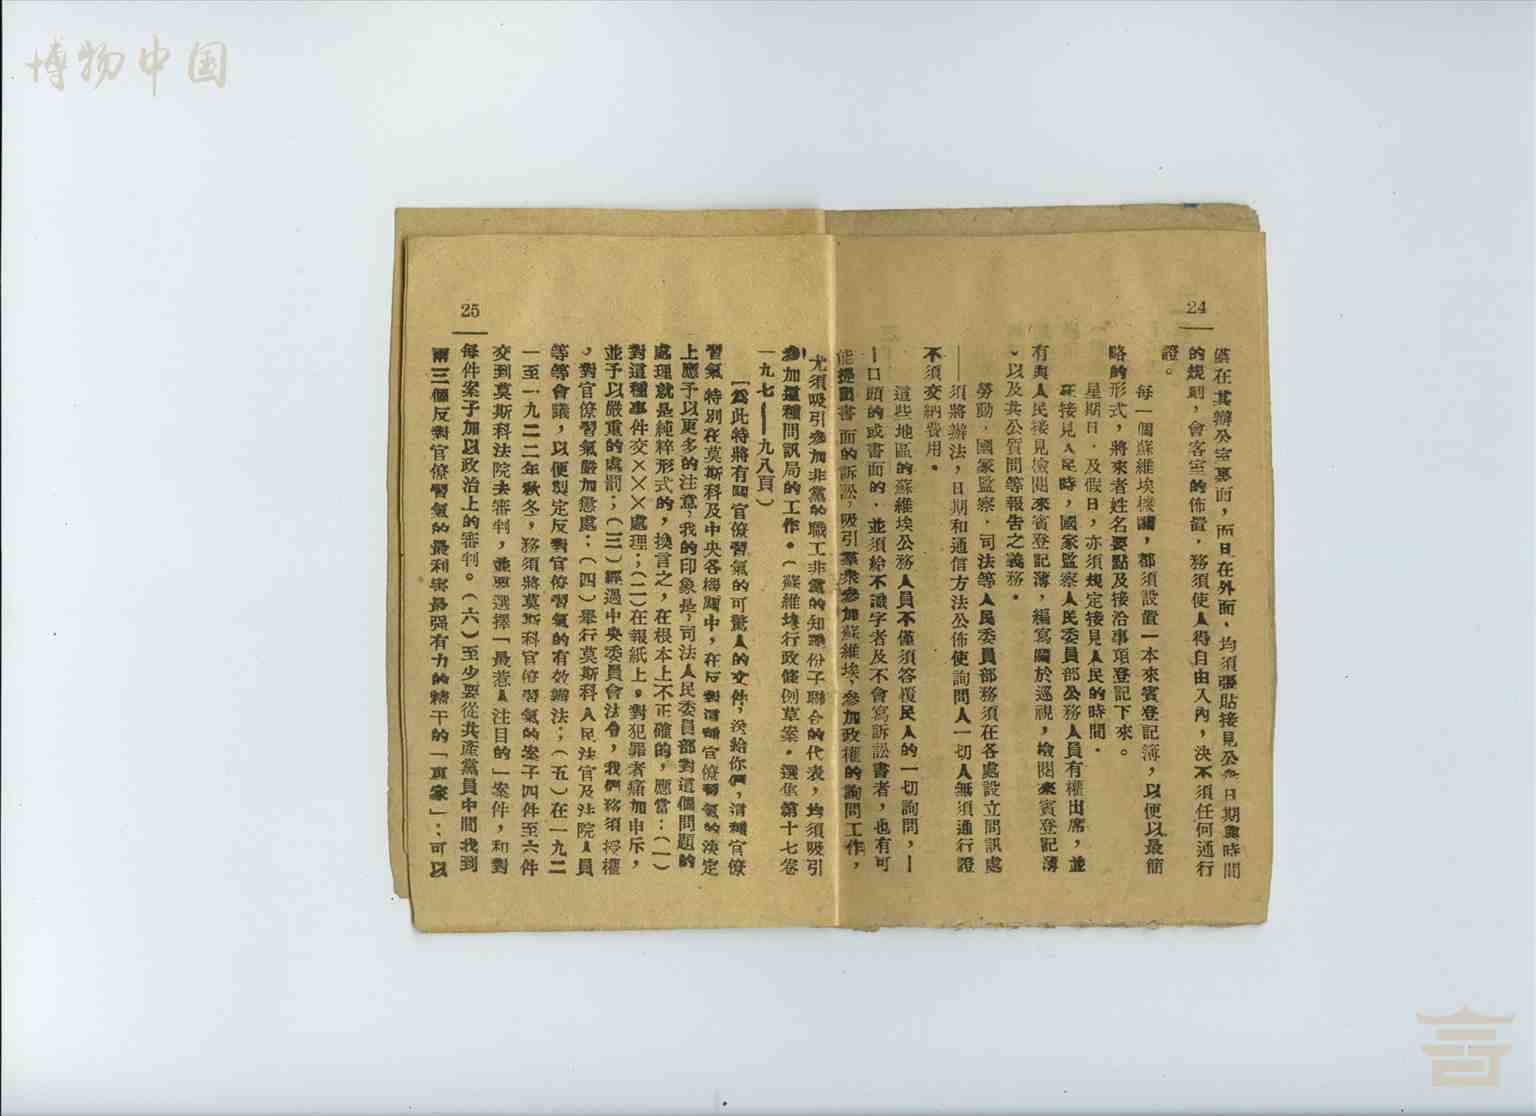 博物中国
24
僅在其辦公室裏面，而且在外面，均須張貼接見公衆日期與時間
的規則，會客室的佈置，務須使人得自由入內，決不須任何通行
證。
每一個蘇維埃機關，都須設置一本來賓登記簿，以便以最簡
略的形式，將來者姓名要點及接洽事項登記下來。
星期日，及假日，亦須規定接見人民的時間。
在接見人民時，國家監察人民委員部公務人員有權出席，並
有與人民接見檢閱來賓登記薄，編寫關於巡視，檢閱來賓登記薄
，以及共公質問等報告之義務。
勞動，國家監察，司法等人民委員部務須在各處設立問訊處
——須將辦法，日期和通信方法公佈使詢問人一切人無須通行證
不須交納費用。
這些地區的蘇維埃公務人員不僅須答覆民人的一切詢問，—
—口頭的或書面的，並須給不識字者及不會寫訴訟書者，也有可
能提出書面的訴訟，吸引羣衆參加蘇維埃，參加政權的詢問工作，
25
尤須吸引參加非黨的職工非黨的知識份子聯合的代表，均須吸引
參加這種問訊局的工作。（蘇維埃行政條例草案。選集第十七卷
一九七——九八頁）
「爲此特將有關官僚習氣的可驚人的文件，送給你們，這種官僚
習氣 特別在莫斯科及中央各機關中，在反對這種官僚習氣的決定
上應予以更多的注意，我的印象是，司法人民委員部對這個問題的
處理就是純粹形式的，換言之，在根本上不正確的，應當：（一）
對這種事件交×××處理；（二）在報紙上。對犯罪者痛加申斥，
並予以嚴重的處罰；（三）經過中央委員會法令，我們務須授權
，對官僚習氣嚴加懲處：（四）舉行莫斯科人民法官及法院人員
等等會議，以便製定反對官僚習氣的有效辦法；（五）在一九二
一至一九二二年秋冬，務須將莫斯科官僚習氣的案子四件至六件
交到莫斯科法院去審判，並要選擇「最惹人注目的」案件，和對
每件案子加以政治上的審判。（六）至少要從共產黨員中間找到
兩三個反對官僚習氣的最利害最强有力的精干的「專家」：可以